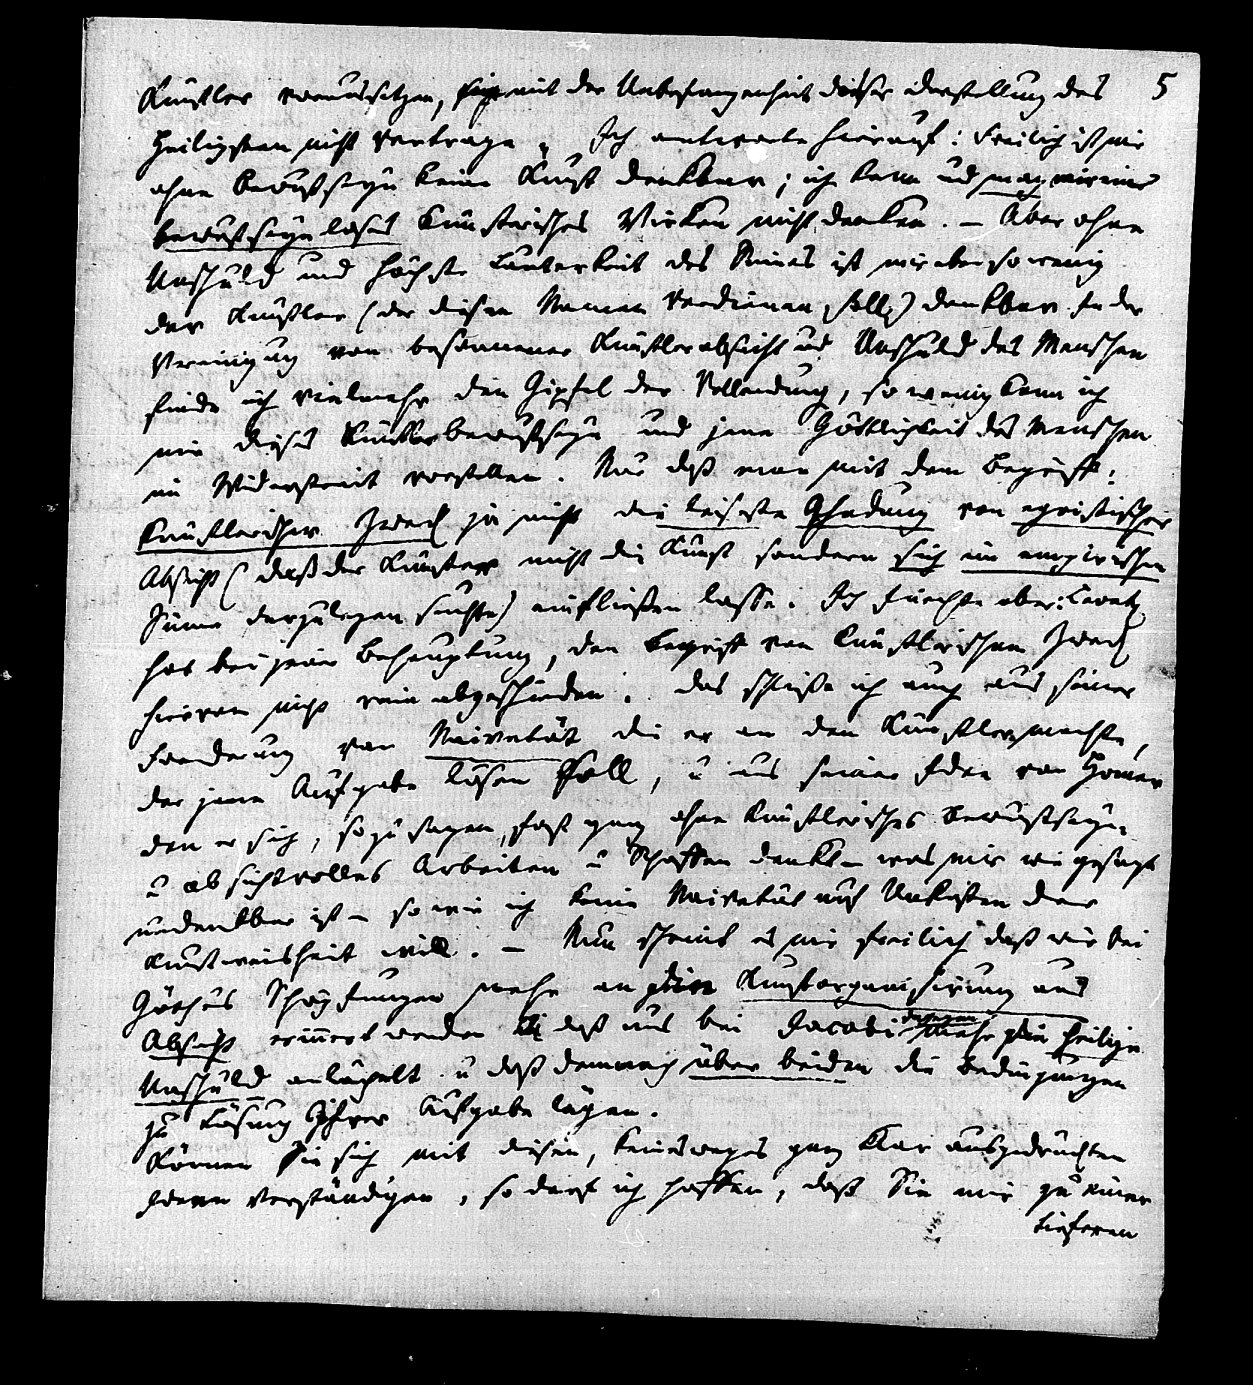 5
Künstler voraussetzen, sich mit der Unbefangenheit dieser Darstellung des
Heiligsten nicht vertrage. Ich antworte hierauf: Freilich ist mir
ohne Bewußtseyn keine Kunst denkbar; ich kann und mag mir ein
bewußtseynloses Künstlerisches Wirken nicht denken. – Aber ohne
Unschuld und höchste Lauterkeit des Sinnes ist mir eben so wenig
der Künstler (der diesen Namen verdienen soll) denkbar. In der
Vereinigung von besonnener Künstlerabsicht und Unschuld des Menschen
finde ich vielmehr den Gipfel der Vollendung, so wenig kann ich
mir dieses Künstlerbewußtseyn und jene Göttlichkeit des Menschen
im Widerstreit vorstellen. Nur daß man mit dem Begriff:
Künstlerischer Zweck ja nicht die leiseste Ahndung von egoistischer
Absicht (daß der Künstler nicht die Kunst sondern sich im empirischen
Sinne darzulegen suchte) einfließen lasse. Ich fürchte aber: Levetz.
hat bei jener Behauptung, den Begriff von künstlerischem Zweck
hiervon nicht rein abgeschieden. Das schließe ich auch aus seiner
Forderung von Naivetät die er an den Künstler machte,
der jene Aufgabe lösen soll, u aus seiner Idee von Homer
den er sich, so zu sagen, fast ganz ohne künstlerisches Bewußtseyn
u absichtvolles Arbeiten u Schaffen denkt – was mir wie gesagt
undenkbar ist – so wie ich keine Naivetät auf Unkosten der
Kunstweisheit will. – Nun scheint es mir freilich daß wir bei
Göthes Schöpfungen mehr an die Kunstorganisirung aus
Absicht erinnert werden daß uns bei Jacobi dagegen mehr die heilige
Unschuld anlächelt u daß demnach über beiden die Bedingungen
zu Lösung Ihrer Aufgabe lägen.
Können Sie sich mit diesen, keinesweges ganz klar ausgedrückten
Ideen verständigen, so darf ich hoffen, daß Sie mir zu einer
tieferen